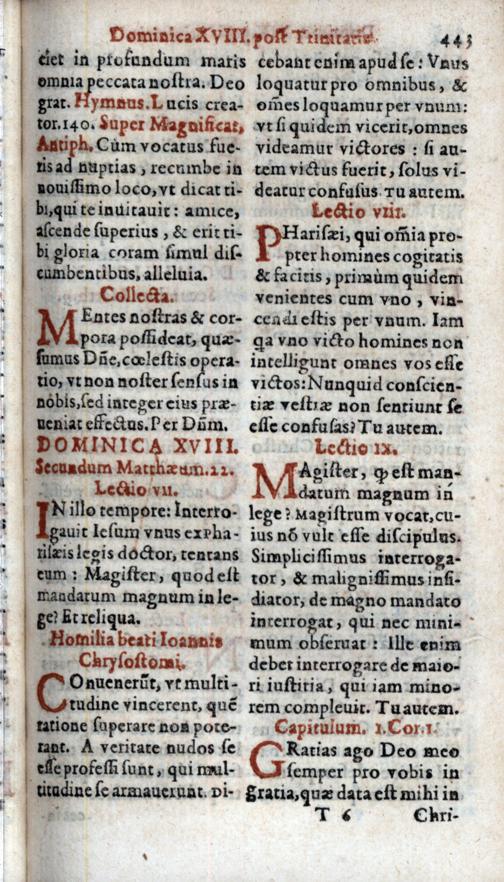 Dominica XVIII. post Trinitatis. 443
ciet in profundum maris
omnia peccata nostra. Deo
grat. Hymnus. Lucis crea-
tor. 140. Super Magnificat,
Antiph. Cùm vocatus fue-
ris ad nuptias, recumbe in
nouissimo loco, vt dicat ti-
bi, qui te inuitauit: amice,
ascende superius, & erit ti-
bi gloria coram simul dis-
cumbentibus, alleluia.
Collecta.
MEntes nostras & cor-
pora possideat, quæ-
sumus Dñe, cœlestis opera-
tio, vt non noster sensus in
nobis, sed integer eius præ-
ueniat effectus. Per Dñm.
DOMINICA XVIII.
Secundum Matthæum. 22.
Lectio VII.
IN illo tempore: Interro-
gauit Iesum vnus ex Pha-
risæis legis doctor, tentans
eum: Magister, quod est
mandatum magnum in le-
ge? Et reliqua.
Homilia beati Ioannis
Chrysostomi.
COnuenerūt, vt multi-
tudine vincerent, quē
ratione superare non pote-
rant. A veritate nudos se
esse professi sunt, qui mul-
titudine se armauerunt. Di-
cebant enim apud se: Vnus
loquatur pro omnibus, &
om̄es loquamur per vnum:
vt si quidem vicerit, omnes
videamur victores: si au-
tem victus fuerit, solus vi-
deatur confusus. Tu autem.
Lectio VIII.
PHarisæi, qui om̄ia pro-
pter homines cogitatis
& facitis, primùm quidem
venientes cum vno, vin-
cendi estis per vnum. Iam
qa vno victo homines non
intelligunt omnes vos esse
victos: Nunquid conscien-
tiæ vestræ non sentiunt se
esse confusas? Tu autem.
Lectio IX.
MAgister, ꝙ est man-
datum magnum in
lege? Magistrum vocat, cu-
ius nō vult esse discipulus.
Simplicissimus interroga-
tor, & malignissimus insi-
diator, de magno mandato
interrogat, qui nec mini-
mum obseruat: Ille enim
debet interrogare de maio-
ri iustitia, qui iam mino-
rem compleuit. Tu autem.
Capitulum. 1. Cor. 1.
GRatias ago Deo meo
semper pro vobis in
gratia, quæ data est mihi in
T 6 Chri-